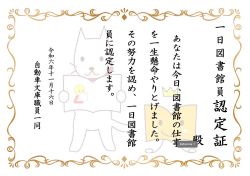 一日図書館員 認定証
殿
あなたは今日、図書館の仕事
を一生懸命やりとげました。
その努力を認め、一日図書館
員に認定します。
令和六年十一月十六日
自動車文庫職員一同